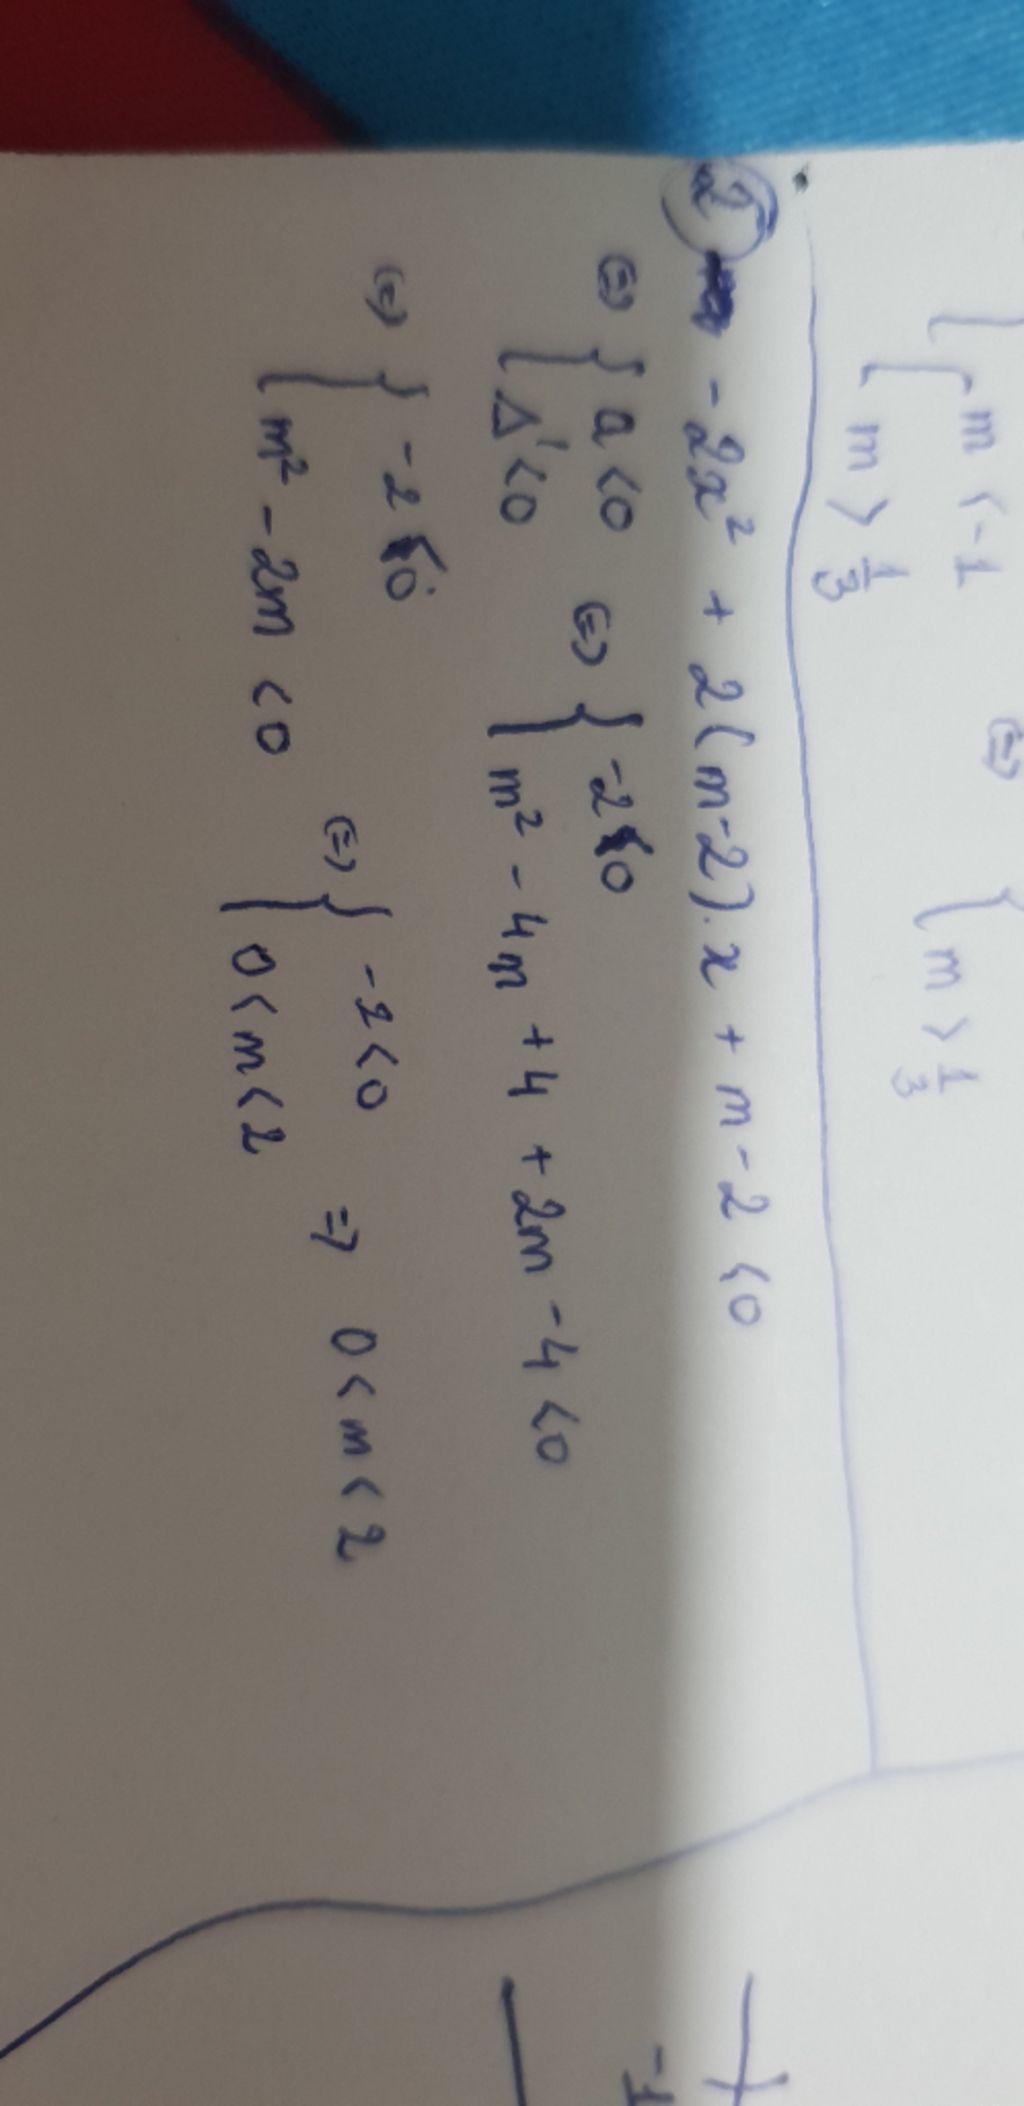 m < -1
m > 1/3
⇔ { m > 1/3
② -2x² + 2(m-2).x + m-2 < 0
⇔ { a < 0 ⇔ { -2 < 0
Δ' < 0 m² - 4m + 4 + 2m - 4 < 0
⇔ { -2 < 0 ⇔ { -2 < 0 ⇒ 0 < m < 2
m² - 2m < 0 0 < m < 2
-1